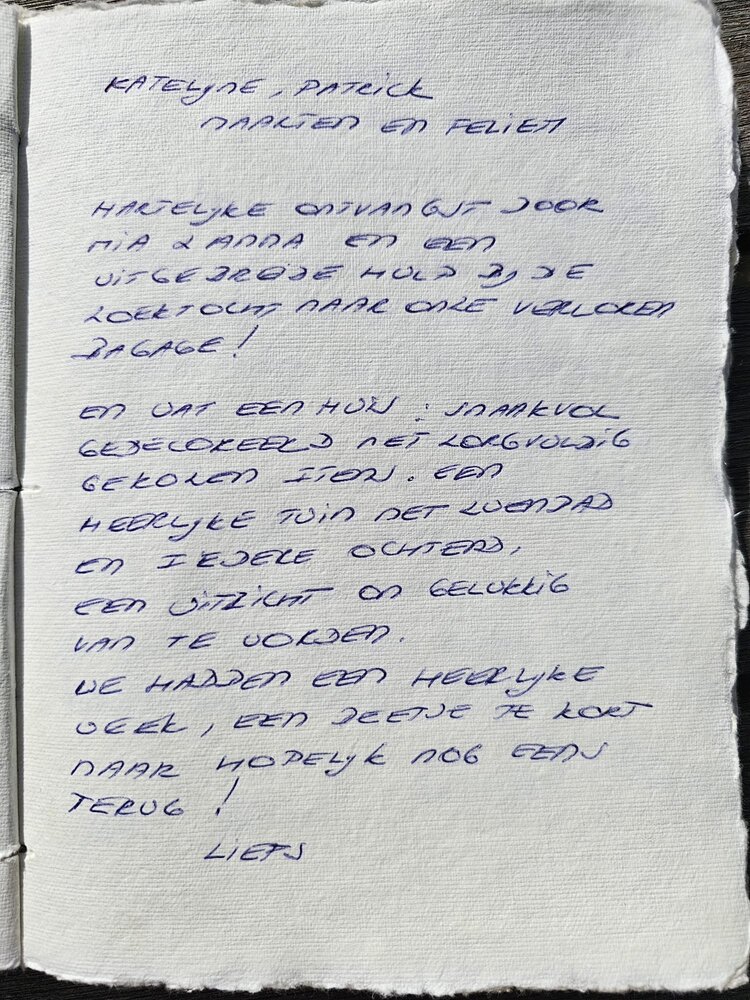 KATELYNE, PATRICK
MAARTEN EN FELIEN
HARTELYKE ONTVANGST DOOR
MIA & ANNA EN EEN
UITGEBREIDE HULP BIJ DE
ZOEKTOCHT NAAR ONZE VERLOREN
BAGAGE!
EN WAT EEN HUIS : SMAAKVOL
GEDECOREERD MET ZORGVULDIG
GEKOZEN ITEMS. EEN
HEERLYKE TUIN MET ZWEMBAD
EN IEDERE OCHTEND,
EEN UITZICHT OM GELUKKIG
VAN TE WORDEN.
WE HADDEN EEN HEERLYKE
WEEK, EEN BEETJE TE KORT
MAAR HOPELYK NOG EENS
TERUG!
LIEFS